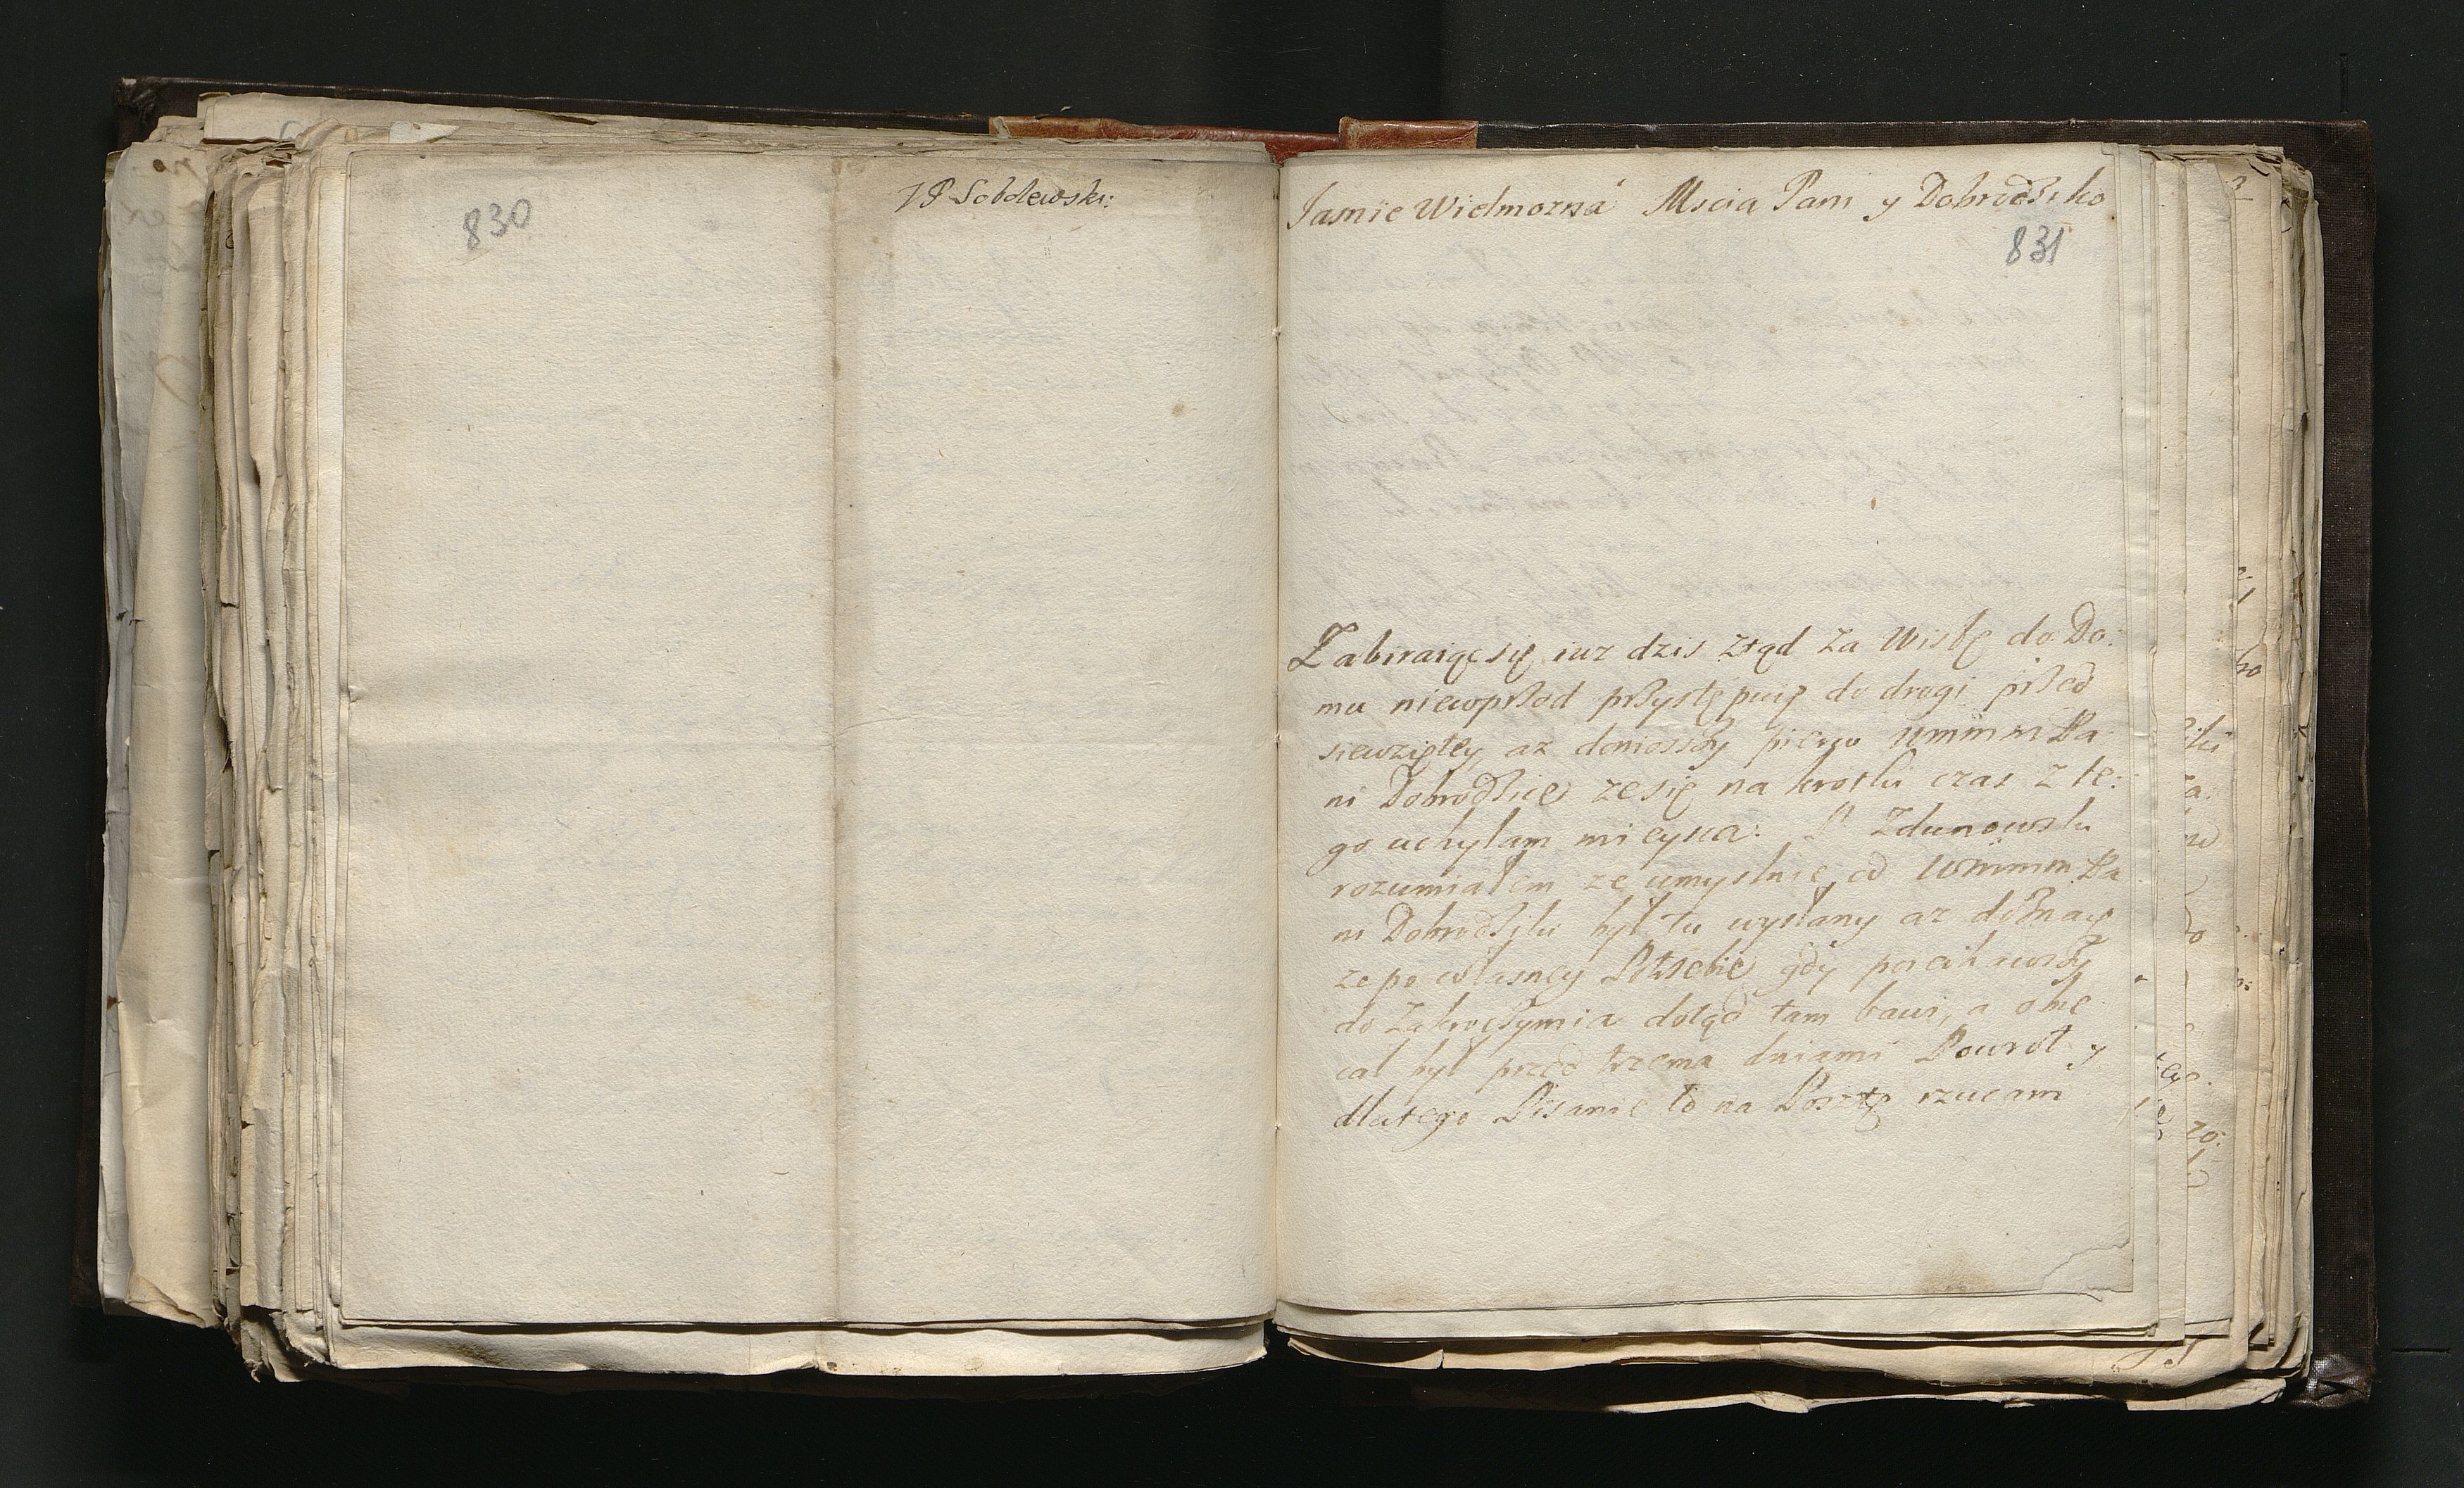 830
JP Sobolewski:
Jasnie Wielmozna Mscia Pani y Dobrodziko
831
Zabiraiąc się iuz dzis ztąd za Wisłę do Do:
mu niewprzod przystępuię do drogi przed
siewziętey, az doniosszy pierw WMMM Pa
ni Dobrodzice ze się na krotki czas z te:
go uchylam mieysca. P. Zdunowski
rozumiałem ze umyslnie od WMMM Pa
ni Dobrodziki był tu wysłany az doznaię
ze po własney Potrzebie gdy poiechawszy
do Zakroczymia dotąd tam bawi, a obie
cał był przed trzema dniami Powrot y
dlatego Pisanie to na Posztę rzucam